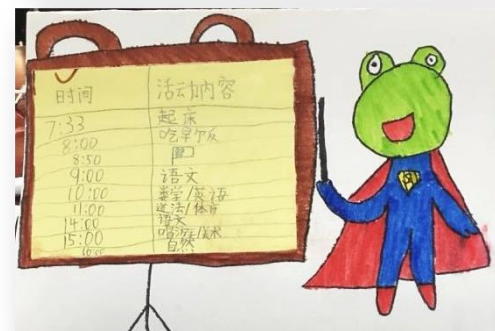 时间 活动内容
7:33 起床
8:00 吃早饭
8:50
9:00 语文
10:00 数学/英语
11:00 道法/体育
14:00 语文
15:00 唱游/美术
自然